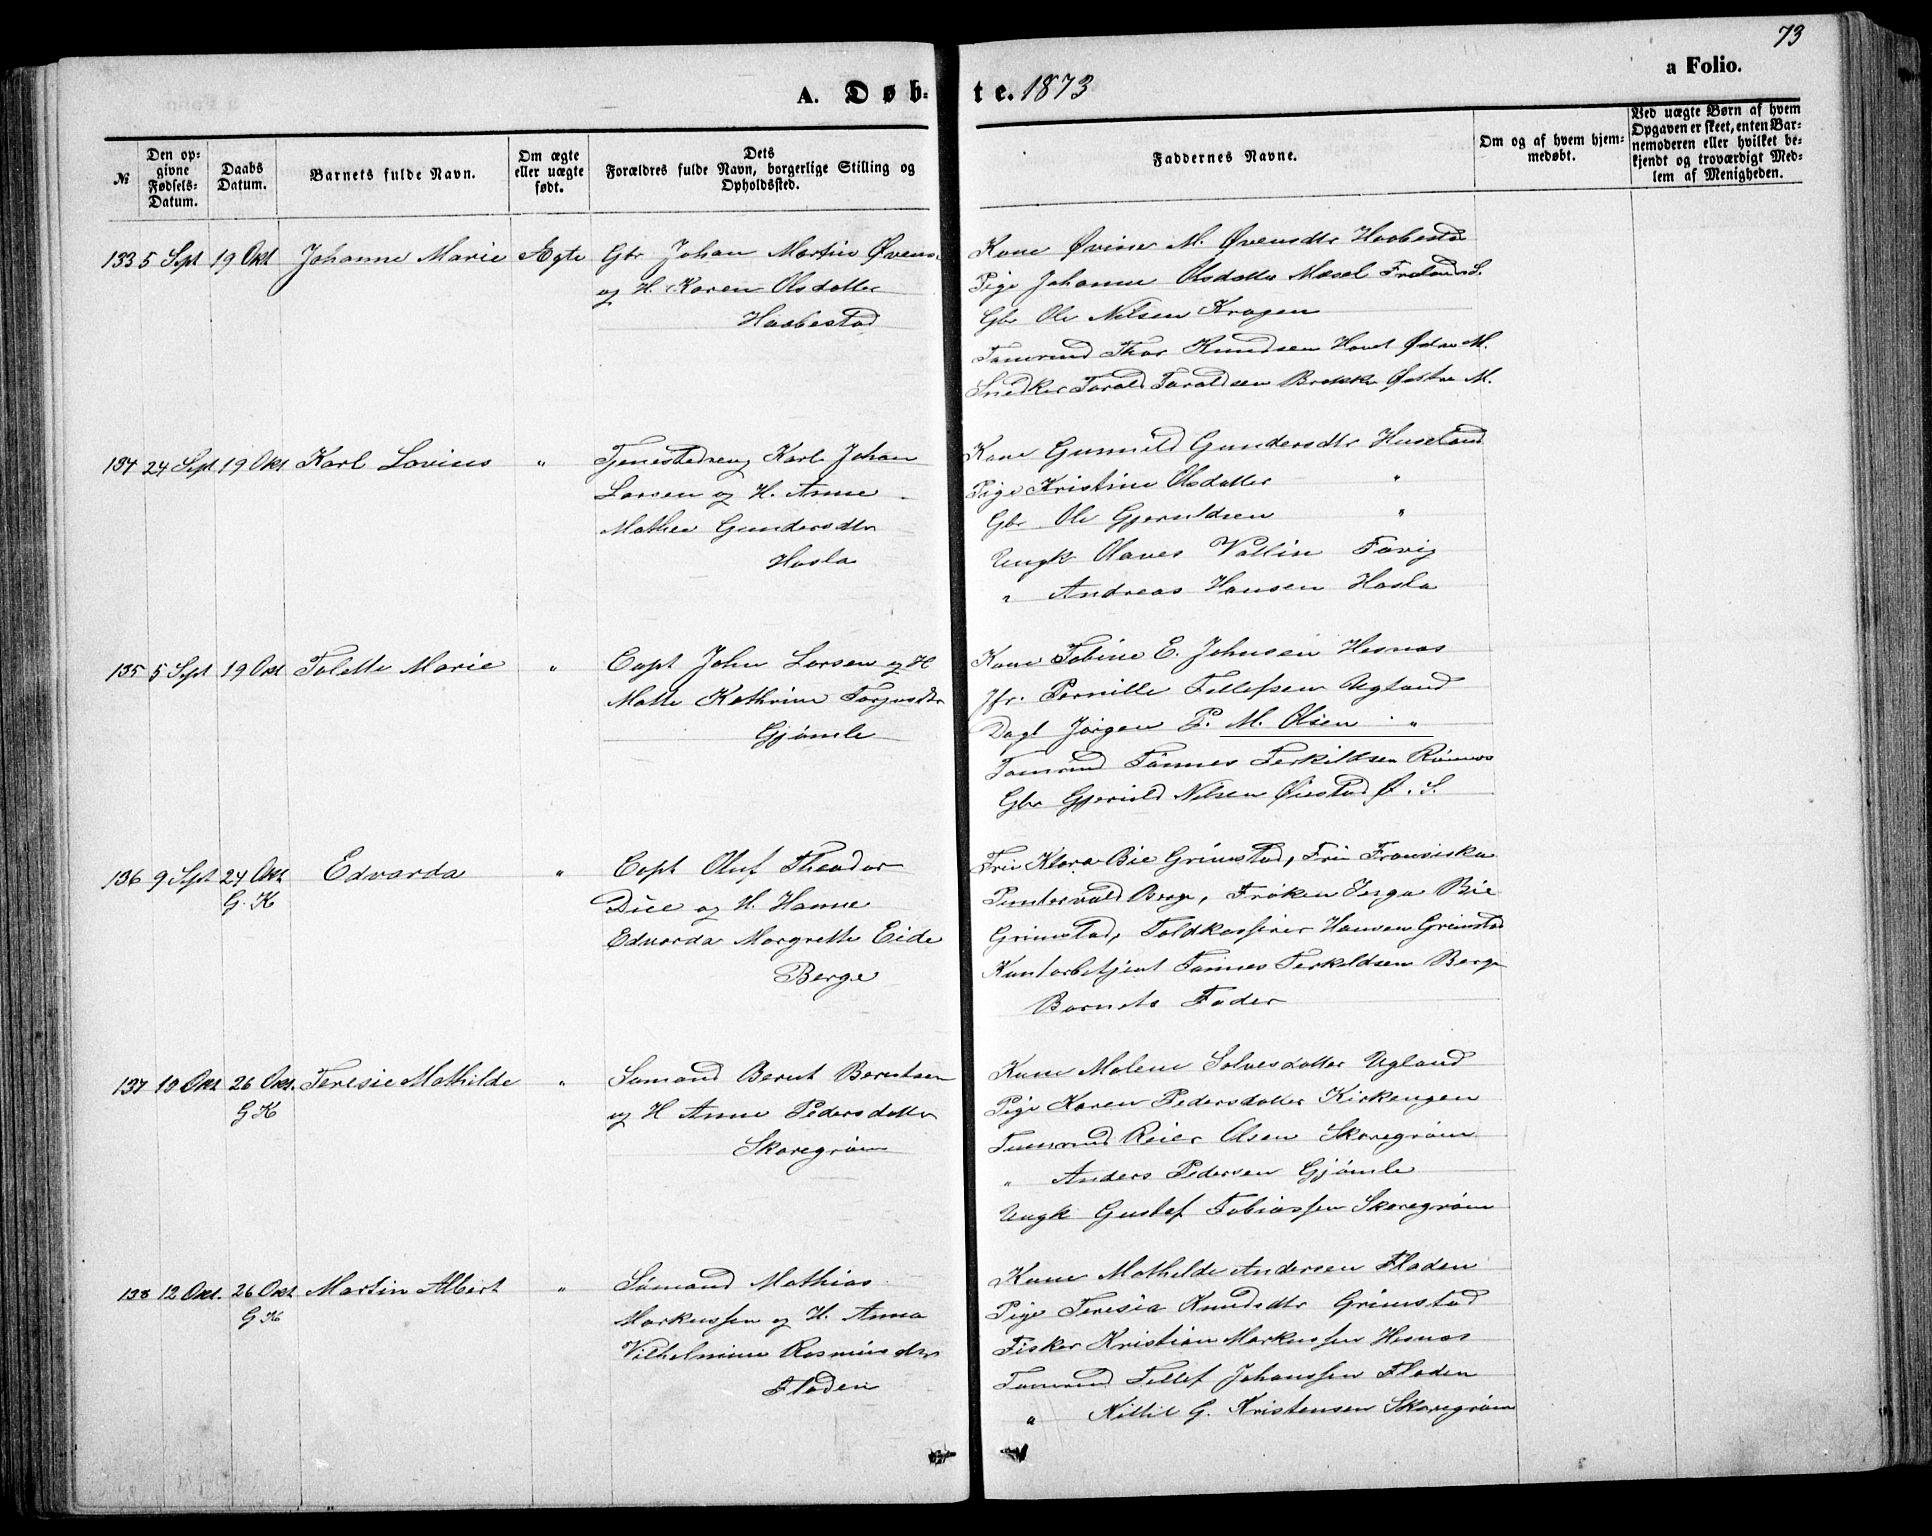 73
a Folio.
A. Døb-te. 1873
№
Den opgivne Fødsels-Datum.
Daabs Datum.
Barnets fulde Navn.
Om ægte eller uægte født.
Dets Forældres fulde Navn, borgerlige Stilling og Opholdssted.
Faddernes Navne.
Om og af hvem hjemmedøbt.
Ved uægte Børn af hvem Opgaven er skeet, enten Barnemoderen eller hvilket bekjendt og troværdigt Medlem af Menigheden.
133 5 Sept 19 Okt Johanne Marie Ægte Gbr Johan Martin Øvens.
og H. Karen Olsdatter
Haabestad
Kone Øvine M. Øvensdtr Haabestad
Pige Johanne Olsdatter Mæsel Frolands S.
Gbr Ole Nilsen Kragen
Tømrmd Thor Knudsen Hovet Østre M.
Snedker Tarald Taraldsen Brække Østre M.
134 24 Sept 19 Okt Karl Lovius " Tjenestedreng Karl Johan
Larsen og H. Anne
Mathea Gundersdtr
Hasla
Kone Gunnild Gundersdtr Huseland
Pige Kristine Olsdatter "
Gbr Ole Gjeruldsen "
Ungk Olaves Vallin Favig
" Andreas Hansen Hasla
135 5 Sept 19 Okt Tolette Marie " Capt John Larsen og H
Matte Kathrine Torjusdtr
Gjømle
Kone Tobine E. Johnsen Hesnæs
Jfr. Pernille Tellefsen Ugland
Dagl Jørgen P. M. Olsen "
Tømrmd Tønnes Terkildsen Rønnes
Gbr Gjeruld Nilsen Øiestad Ø. S.
136 9 Sept 24 Okt Edvarda " Capt Oluf Theodor
G. K
Due og H. Hanne
Edvarda Margrethe Eide
Berge
Fru Klara Bie Grimstad, Fru Fransiska
Pundervold Berge, Frøken Inga Bie
Grimstad, Toldkasserer Hansen Grimstad
Kontorbetjent Tønnes Terkildsen Berge
Barnets Fader
137 10 Okt 26 Okt. Teresie Mathilde " Sømand Bernt Berntsen
G K
og H Anne Pedersdatter
Skaregrøm
Kone Malene Salvesdatter Ugland
Pige Karen Pedersdatter Kirkengen
Tømrmd Reier Olsen Skaregrøm
" Anders Pedersen Gjømle
Ungk Gustaf Tobiassen Skaregrøm
138 12 Okt. 26 Okt Martin Albert " Sømand Mathias
G K
Markussen og H. Anna
Vilhelmine Rasmusdtr
Fladen
Kone Mathilde Andersen Fladen
Pige Teresia Knudsdtr Grimstad
Fisker Kristian Markussen Hesnæs
Tømrmd Tellef Johanssen Fladen
" Kittil G. Kristensen Skaregrøm